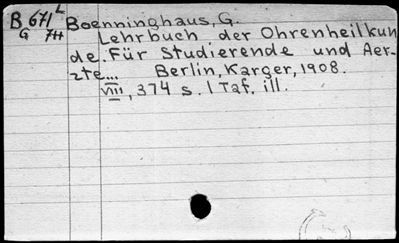 B 671 L Boenninghaus, G.
G 7H Lehrbuch der Ohrenheilkun
de. Für Studierende und Aer-
zte... Berlin, Karger, 1908.
VIII, 374 s. 1 Taf. ill.